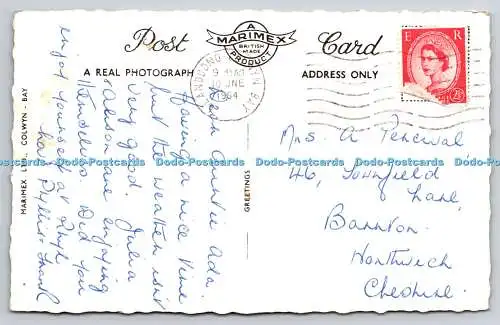 Post
A
MARIMEX
BRITISH
MADE
PRODUCT
Card
A REAL PHOTOGRAPH
ADDRESS ONLY
9 AM
10 JNE
1964
E R
2½D
MARIMEX LTD. COLWYN - BAY
GREETINGS
Dear Auntie Ada.
Having a nice time
but the weather isn't
very good Julia
& Alison are enjoying
themselves Did you
enjoy yourself at Rhyl
love Phyllis & Frank
Mrs A Percival
46, Townfield
Lane
Barnton
Northwich
Cheshire.
Ddb-Postcards Ddb-Postcards Ddb-Postcards Ddb-Postcards Ddb-Postcards